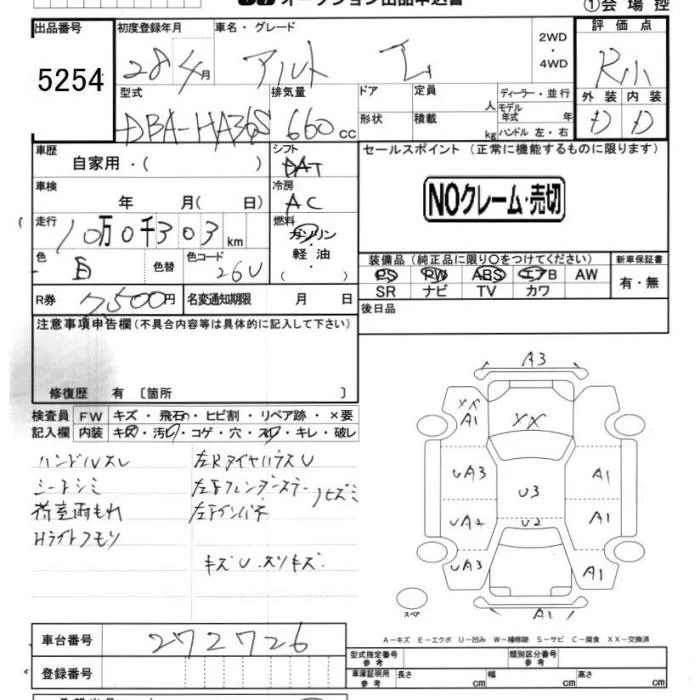 オークション出品申込書
①会場控
出品番号 初度登録年月 車名・グレード 評価点
5254 28年4月 アルト 2WD・4WD R小
型式 排気量 ドア 定員 ディーラー・並行 外装 内装
DBA-HA36S 660cc 人 モデル年式 年 D D
形状 積載 kg ハンドル 左・右
車歴 シフト セールスポイント (正常に機能するものに限ります)
自家用・( ) DAT
車検 冷房 NOクレーム・売切
年 月( 日) AC
走行 燃料
10万0千303km ガソリン・軽油・( )
色 色替 色コード 装備品 (純正品に限り○をつけてください) 新車保証書
白 26U PS PW ABS エアB AW 有・無
SR ナビ TV カワ
R券 7500円 名変通知期限 月 日 後日品
注意事項申告欄 (不具合内容等は具体的に記入して下さい)
修復歴 有 〔箇所 〕
検査員 FW キズ・飛石・ヒビ割・リペア跡・×要
記入欄 内装 キズ・汚れ・コゲ・穴・スレ・キレ・破レ
ハンドルスレ 左Rタイヤハウス U
シートシミ 左Fフェンダーステー
荷室雨もれ 左Fインパネ ヒズミ
Hライトクモリ
キズU スリキズ
A3
XX A1 XX
UA3 A1
U3
UA2 U2 A1
UA3 A1
スペア A1
A-キズ E-エクボ U-凹み W-補修跡 S-サビ C-腐食 XX-交換済
車台番号 272726
型式指定番号 参考 類別区分番号 参考
登録番号 車庫証明用 参考 長さ cm 幅 cm 高さ cm